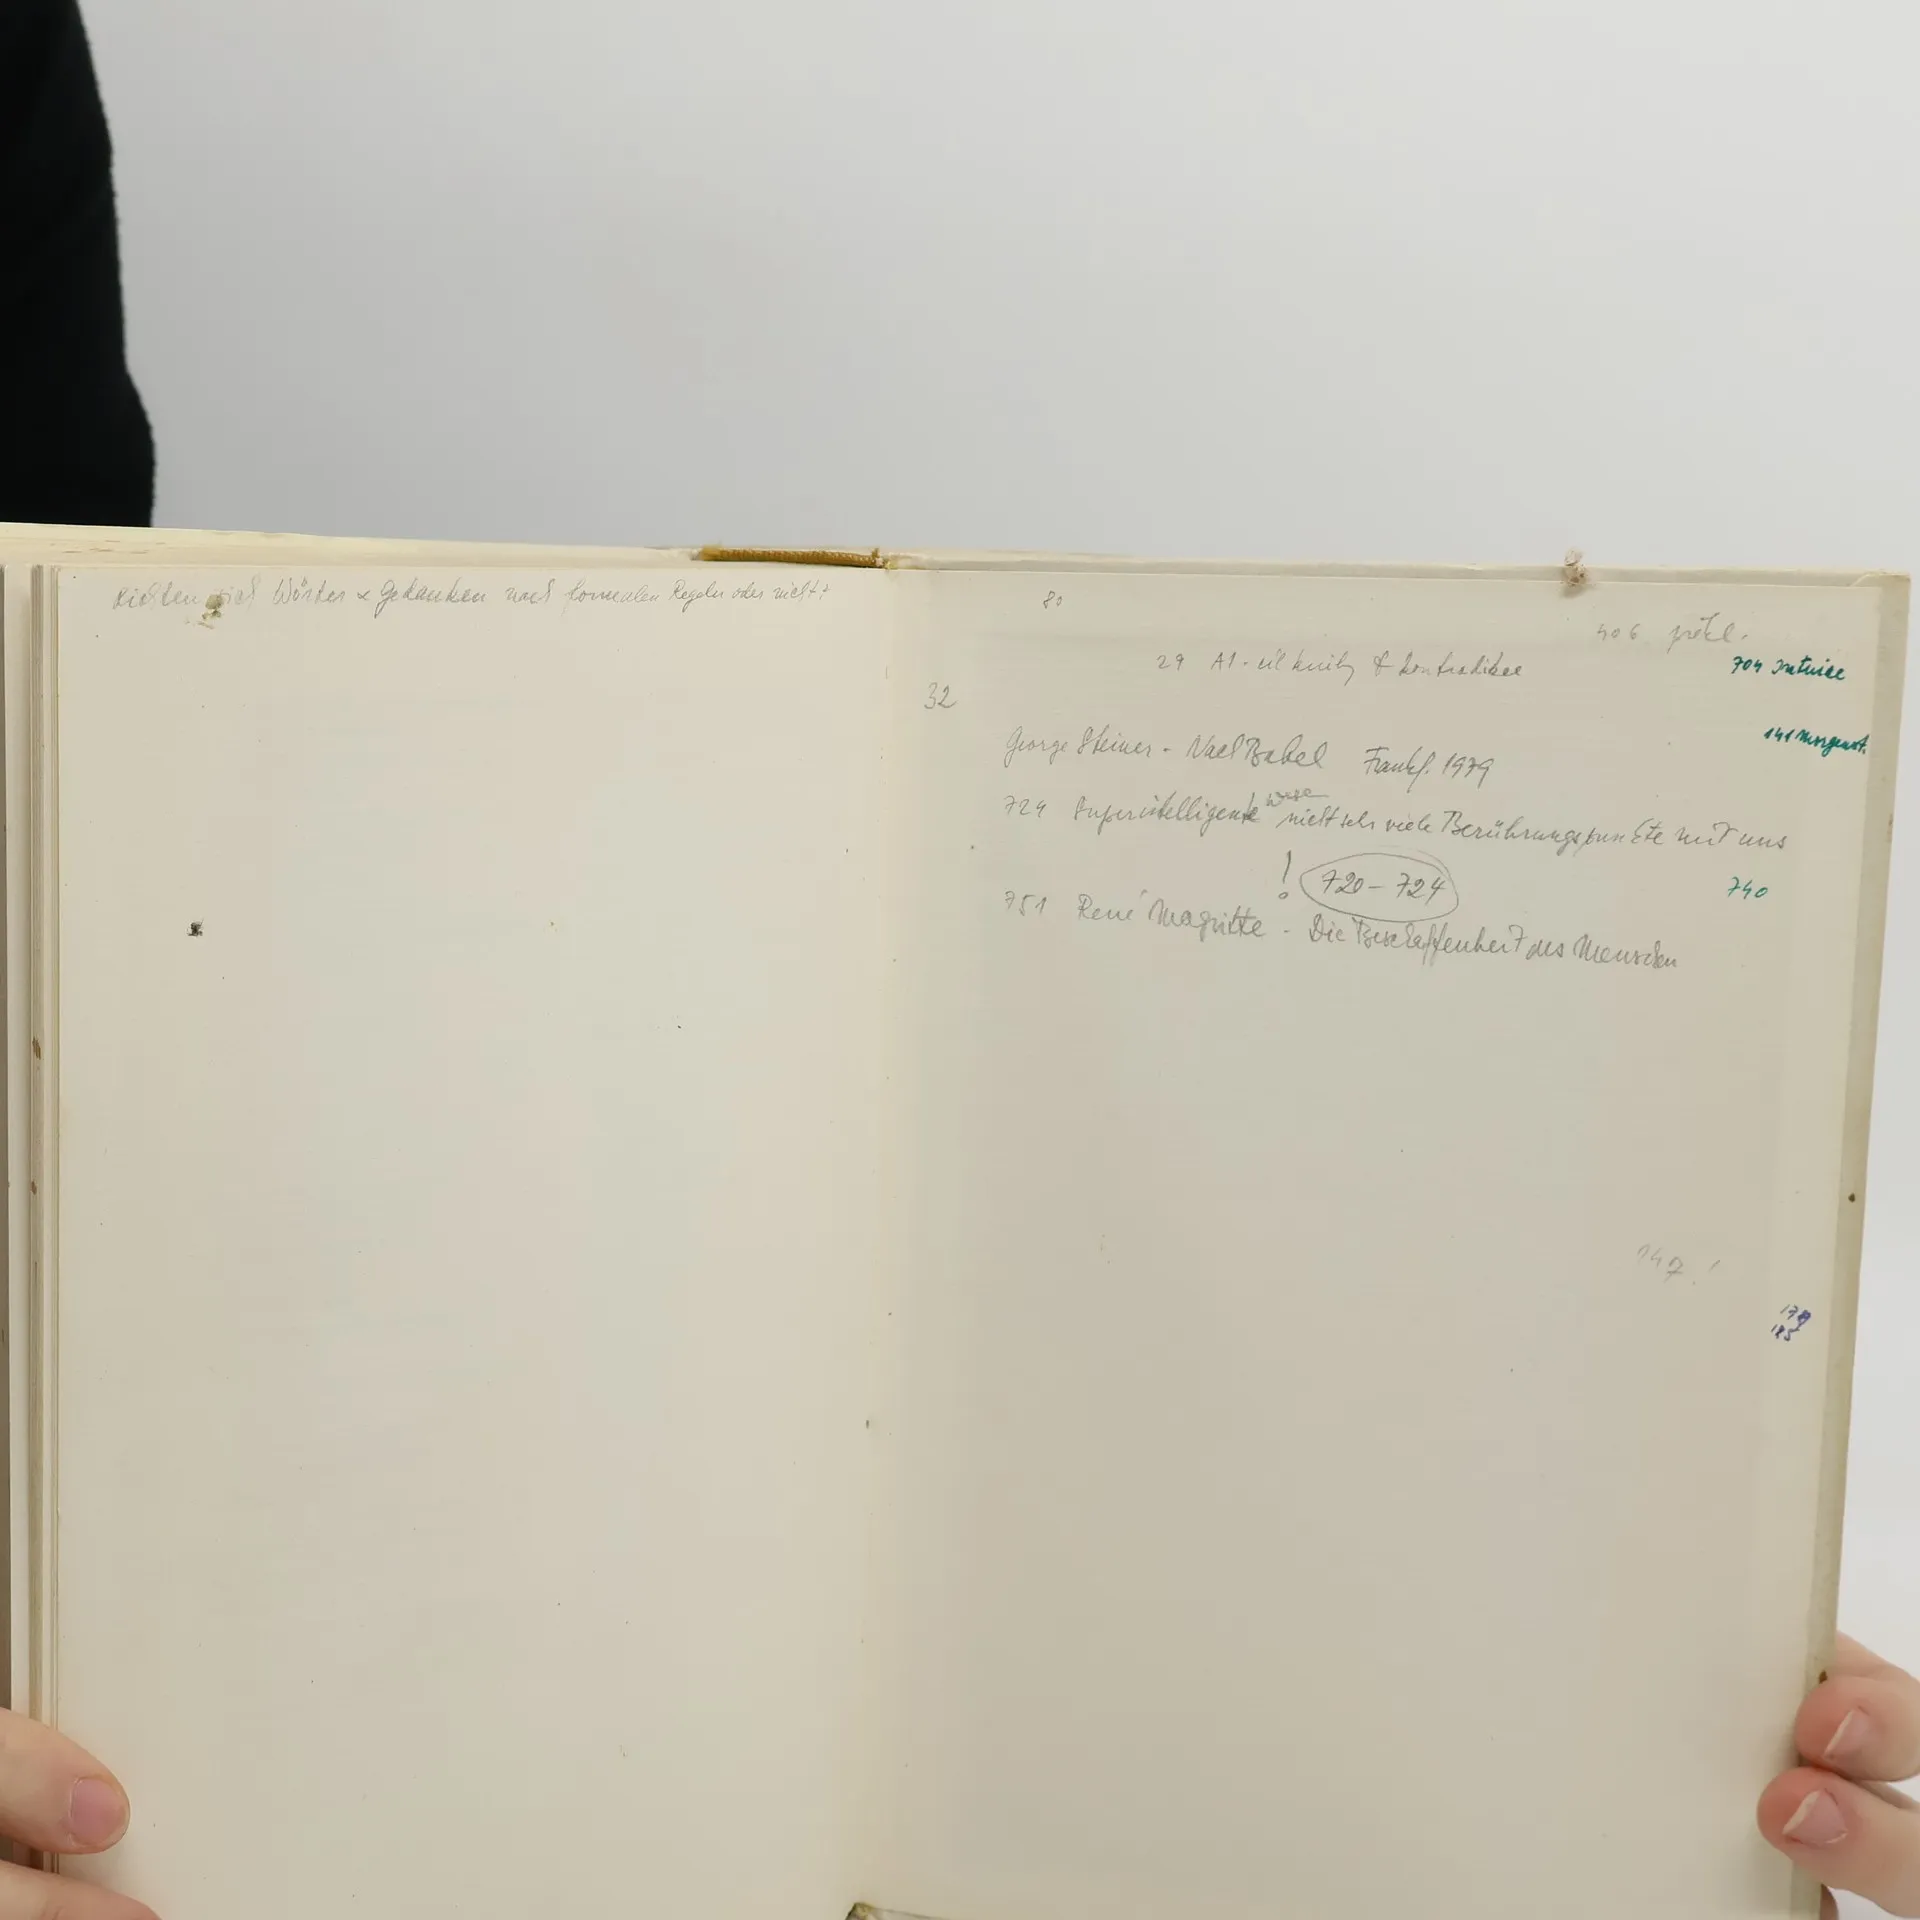 richten sich Wörter & Gedanken nach formalen Regeln oder nicht?
80
406 překl.
29 AI - cíl knihy & kontradikce
704 Intuice
32
141 Morgenst.
George Steiner - Nach Babel Frankf. 1979
724 Superintelligente Wesen nicht sehr viele Berührungspunkte mit uns
! 720 - 724
740
751 René Magritte - Die Beschaffenheit des Menschen
147. !